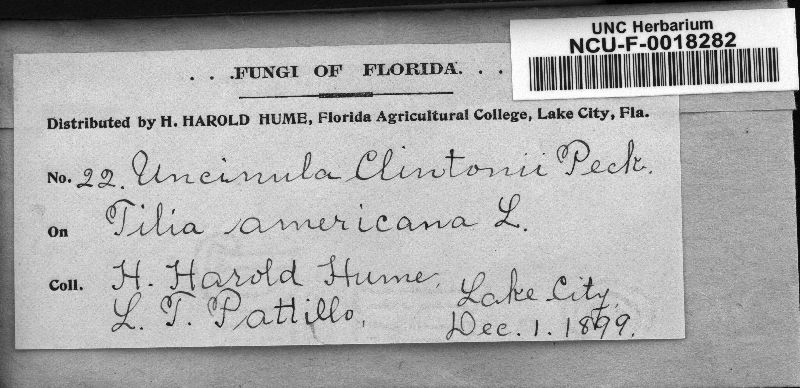 UNC Herbarium
NCU-F-0018282
. . .FUNGI OF FLORIDA. . .
Distributed by H. HAROLD HUME, Florida Agricultural College, Lake City, Fla.
No. 22. Uncinula Clintonii Peck.
On Tilia americana L.
Coll. H. Harold Hume,
L. T. Pattillo,
Lake City,
Dec. 1. 1899.